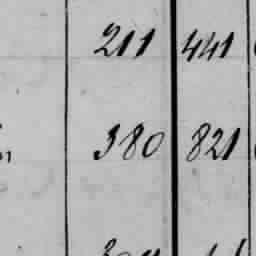 211 441
380 821